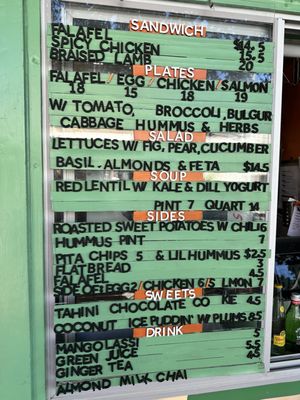 SANDWICH
FALAFEL $14.5
SPICY CHICKEN 15.5
BRAISED LAMB 20
PLATES
FALAFEL/EGG/CHICKEN/SALMON
18 15 18 19
W/ TOMATO, BROCCOLI, BULGUR
CABBAGE HUMMUS & HERBS
SALAD
LETTUCES W/ FIG, PEAR, CUCUMBER
BASIL. ALMONDS & FETA $14.5
SOUP
RED LENTIL W/ KALE & DILL YOGURT
PINT 7 QUART 14
SIDES
ROASTED SWEET POTATOES W/ CHILI 6
HUMMUS PINT 7
PITA CHIPS 5 & LIL HUMMUS $2.5
FLATBREAD 3
FALAFEL 4.5
SWEETS
TAHINI CHOCOLATE CO KE 4.5
COCONUT ICE PUDDIN' W/ PLUMS 8.5
DRINK
MANGO LASSI 5
GREEN JUICE 5.5
GINGER TEA 4.5
ALMOND MILK CHAI